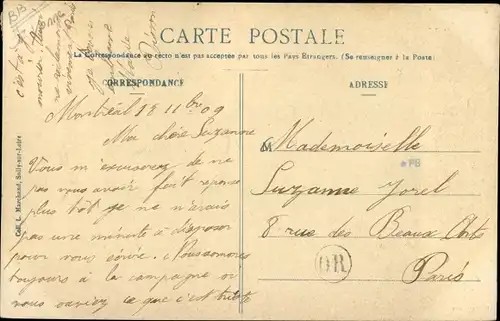 CARTE POSTALE
La Correspondance au recto n'est pas acceptée par tous les Pays Etrangers. (Se renseigner à la Poste)
CORRESPONDANCE
ADRESSE
Coll. L. Marchand, Sully-sur-Loire
Montréal 18 11bre 09
Ma chère Suzanne
Vous m'excuserez de ne
pas vous avoir fait reponse
plus tôt je ne
pas une minute à disposer
pour vous écrire. Nous sommes
toujours à la campagne ou
vous savez ce que c'est triste
Mademoiselle
Suzanne Jorel
8 rue des Beaux Arts
Paris
*PB
OR
BIB